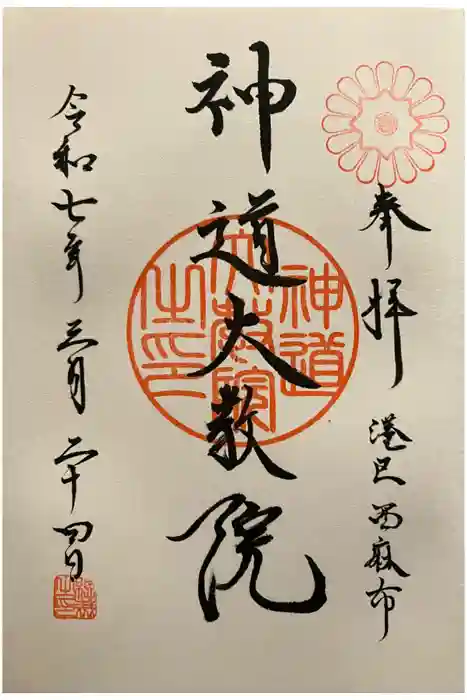 奉拝
港区西麻布
神道大教院
神道
大教院
之印
令和七年三月二十四日